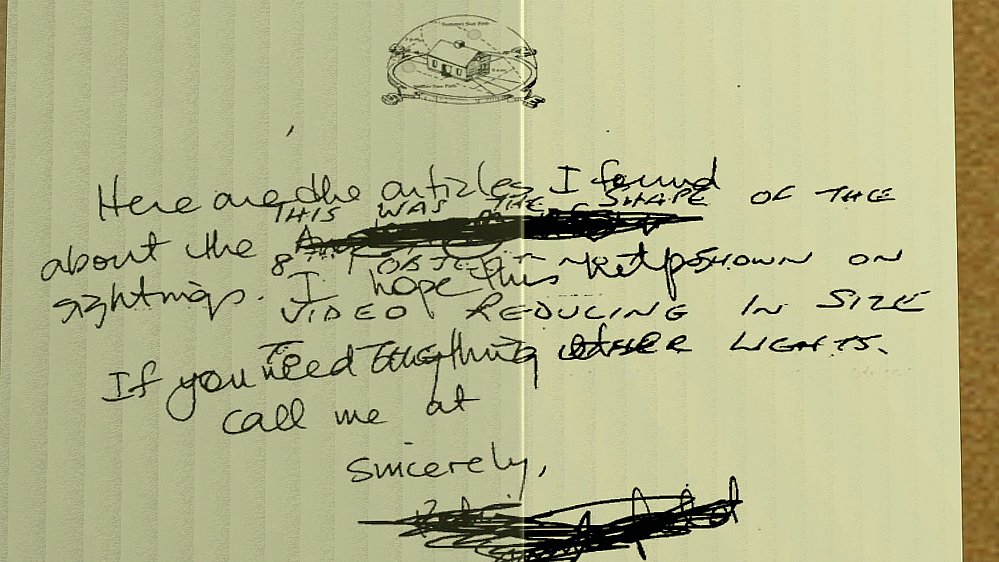 Summer Sun Path
Sun Path
Here are the articles I found
THIS WAS THE SHAPE OF THE
about the
8TH OBJECT NOT SHOWN ON
sightings. I hope this helps
VIDEO REDUCING IN SIZE
If you need anything else
TO THE OTHER LIGHTS.
call me at
Sincerely,